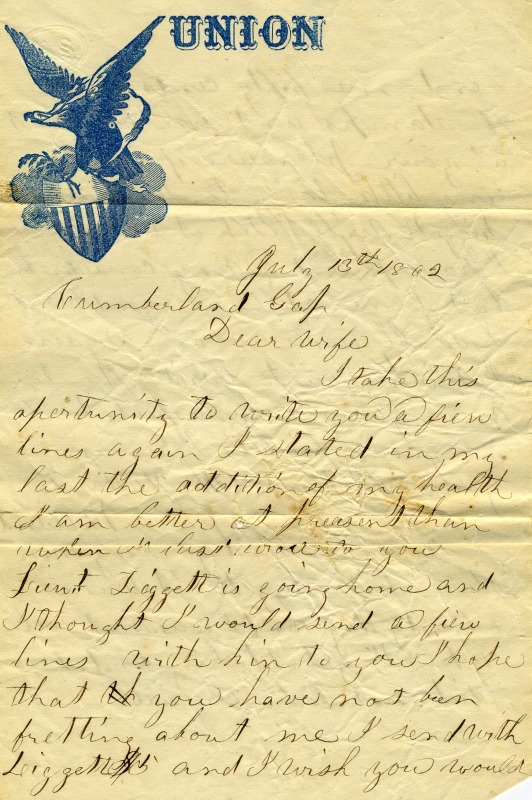 UNION
July 13th 1862
Cumberland Gap
Dear Wife
I take this
opertunity to write you a fiew
lines again I stated in my
last the addition of my health
I am better at preasent than
when I last wrote to you
Lieut Liggett is going home and
I thought I would send a fiew
lines with him to you I hope
that you have not been
fretting about me I send with
Liggett $5 and I wish you would